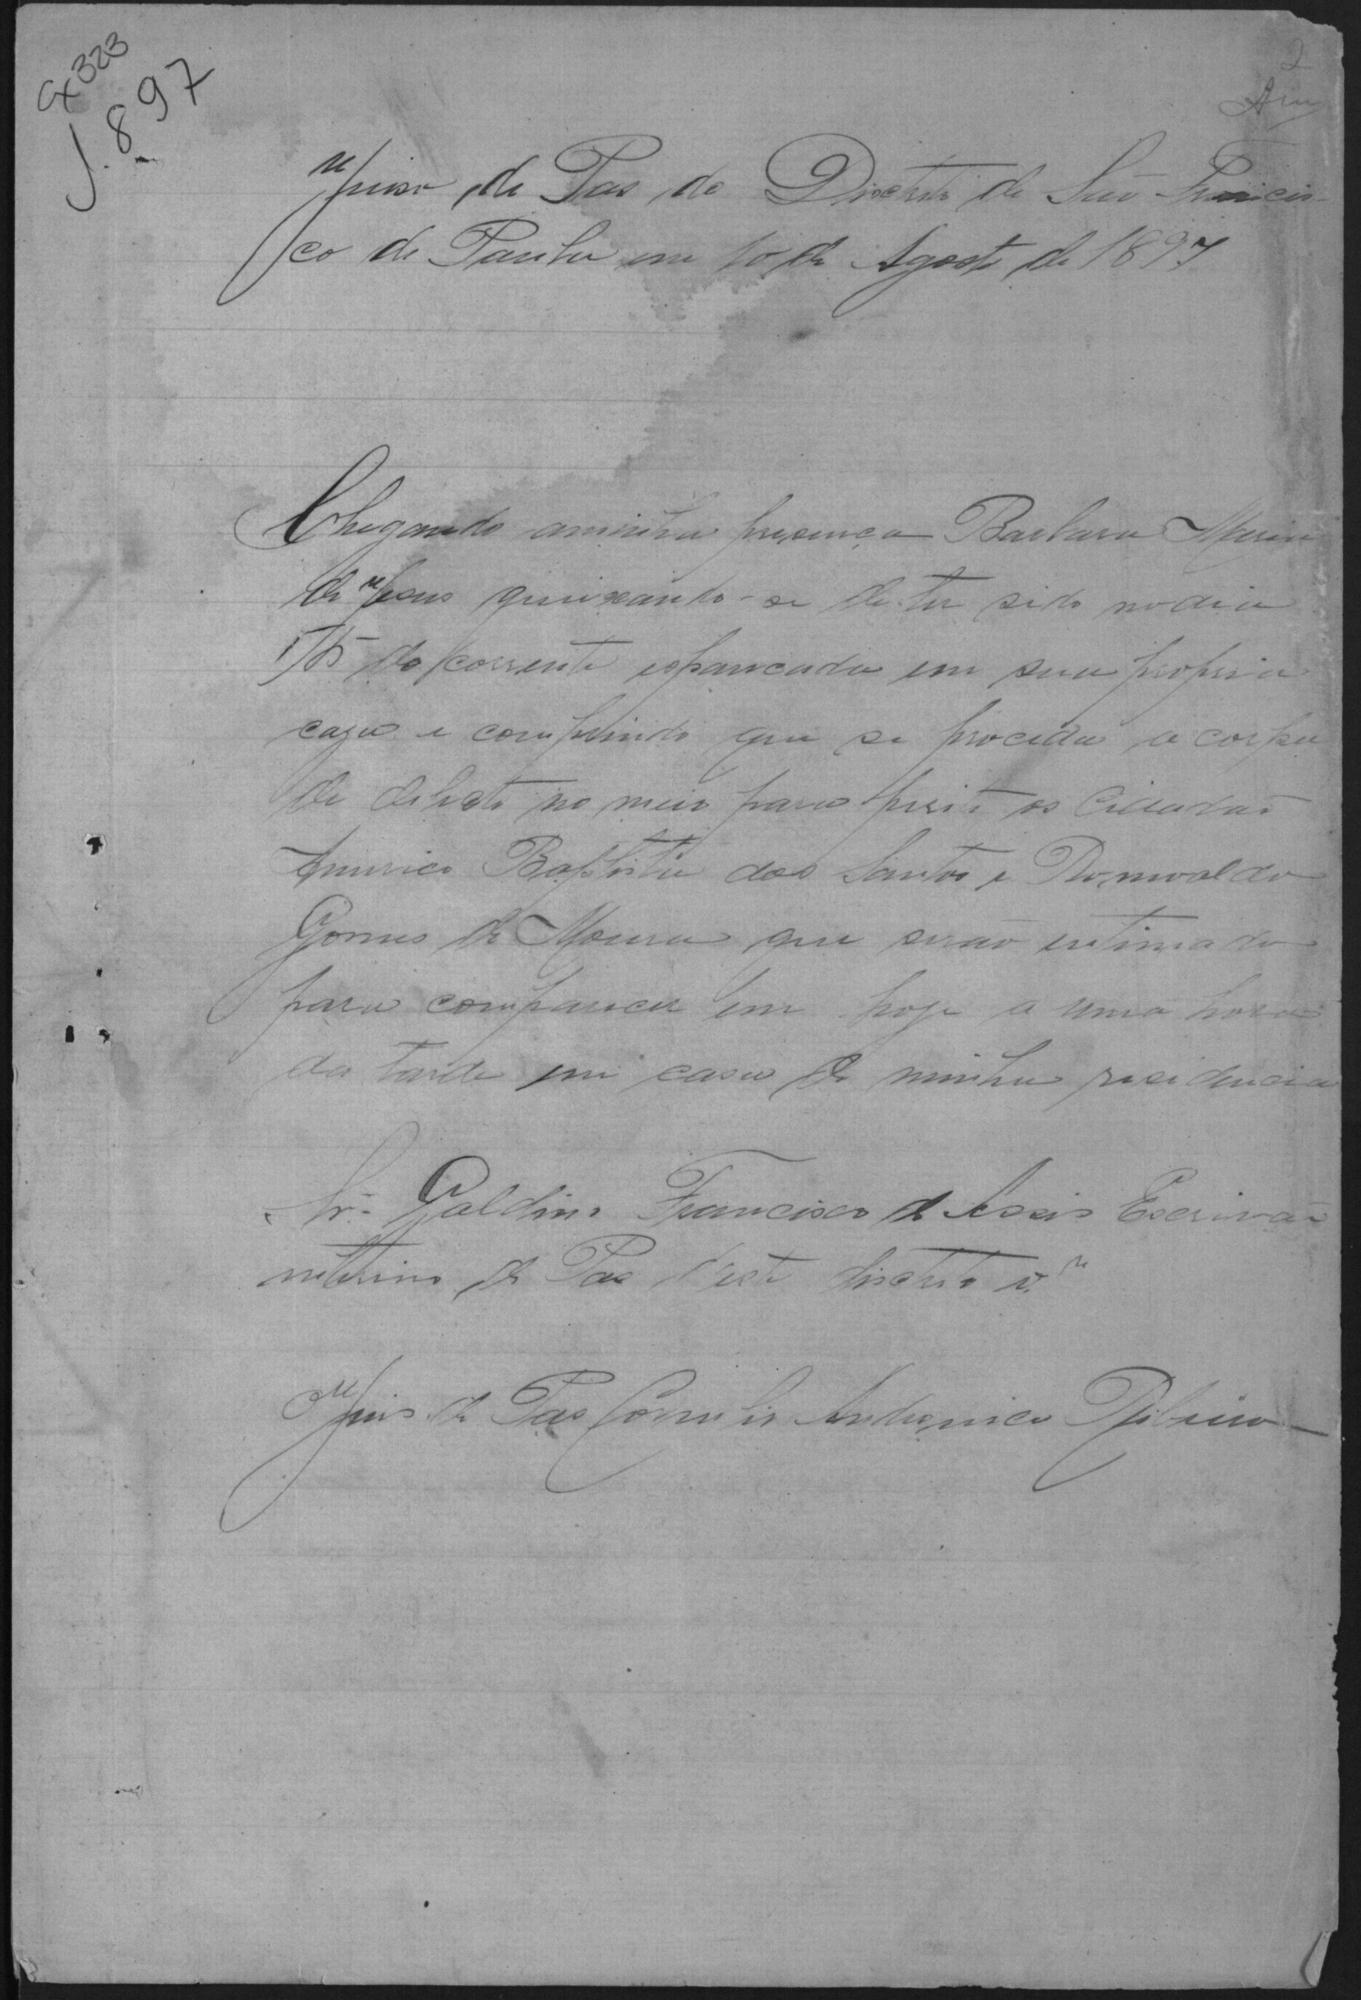 Cx 323
J. 897
2
Juiso de Pas do Districto de São Francis-
co de Paula em 10 de Agosto de 1897
Chegando aminha presença Barbara Maria
de Jesus queixando-se de ter sido nodia
5 do corrente espancada em sua propria
caza e comprindo que se proceda a corpo
de delicto no meio para perito os Cidadão
Americo Baptista dos Santos e Romoaldo
Gomes de Moura que serão intimado
para comparicer em hoje a uma hora
da tarde em casa de minha residencia
Sr. Galdino Francisco de Assis Escrivão
interino de Pas d'este districto
O Juis de Pas Cornelio Andronico Ribeiro